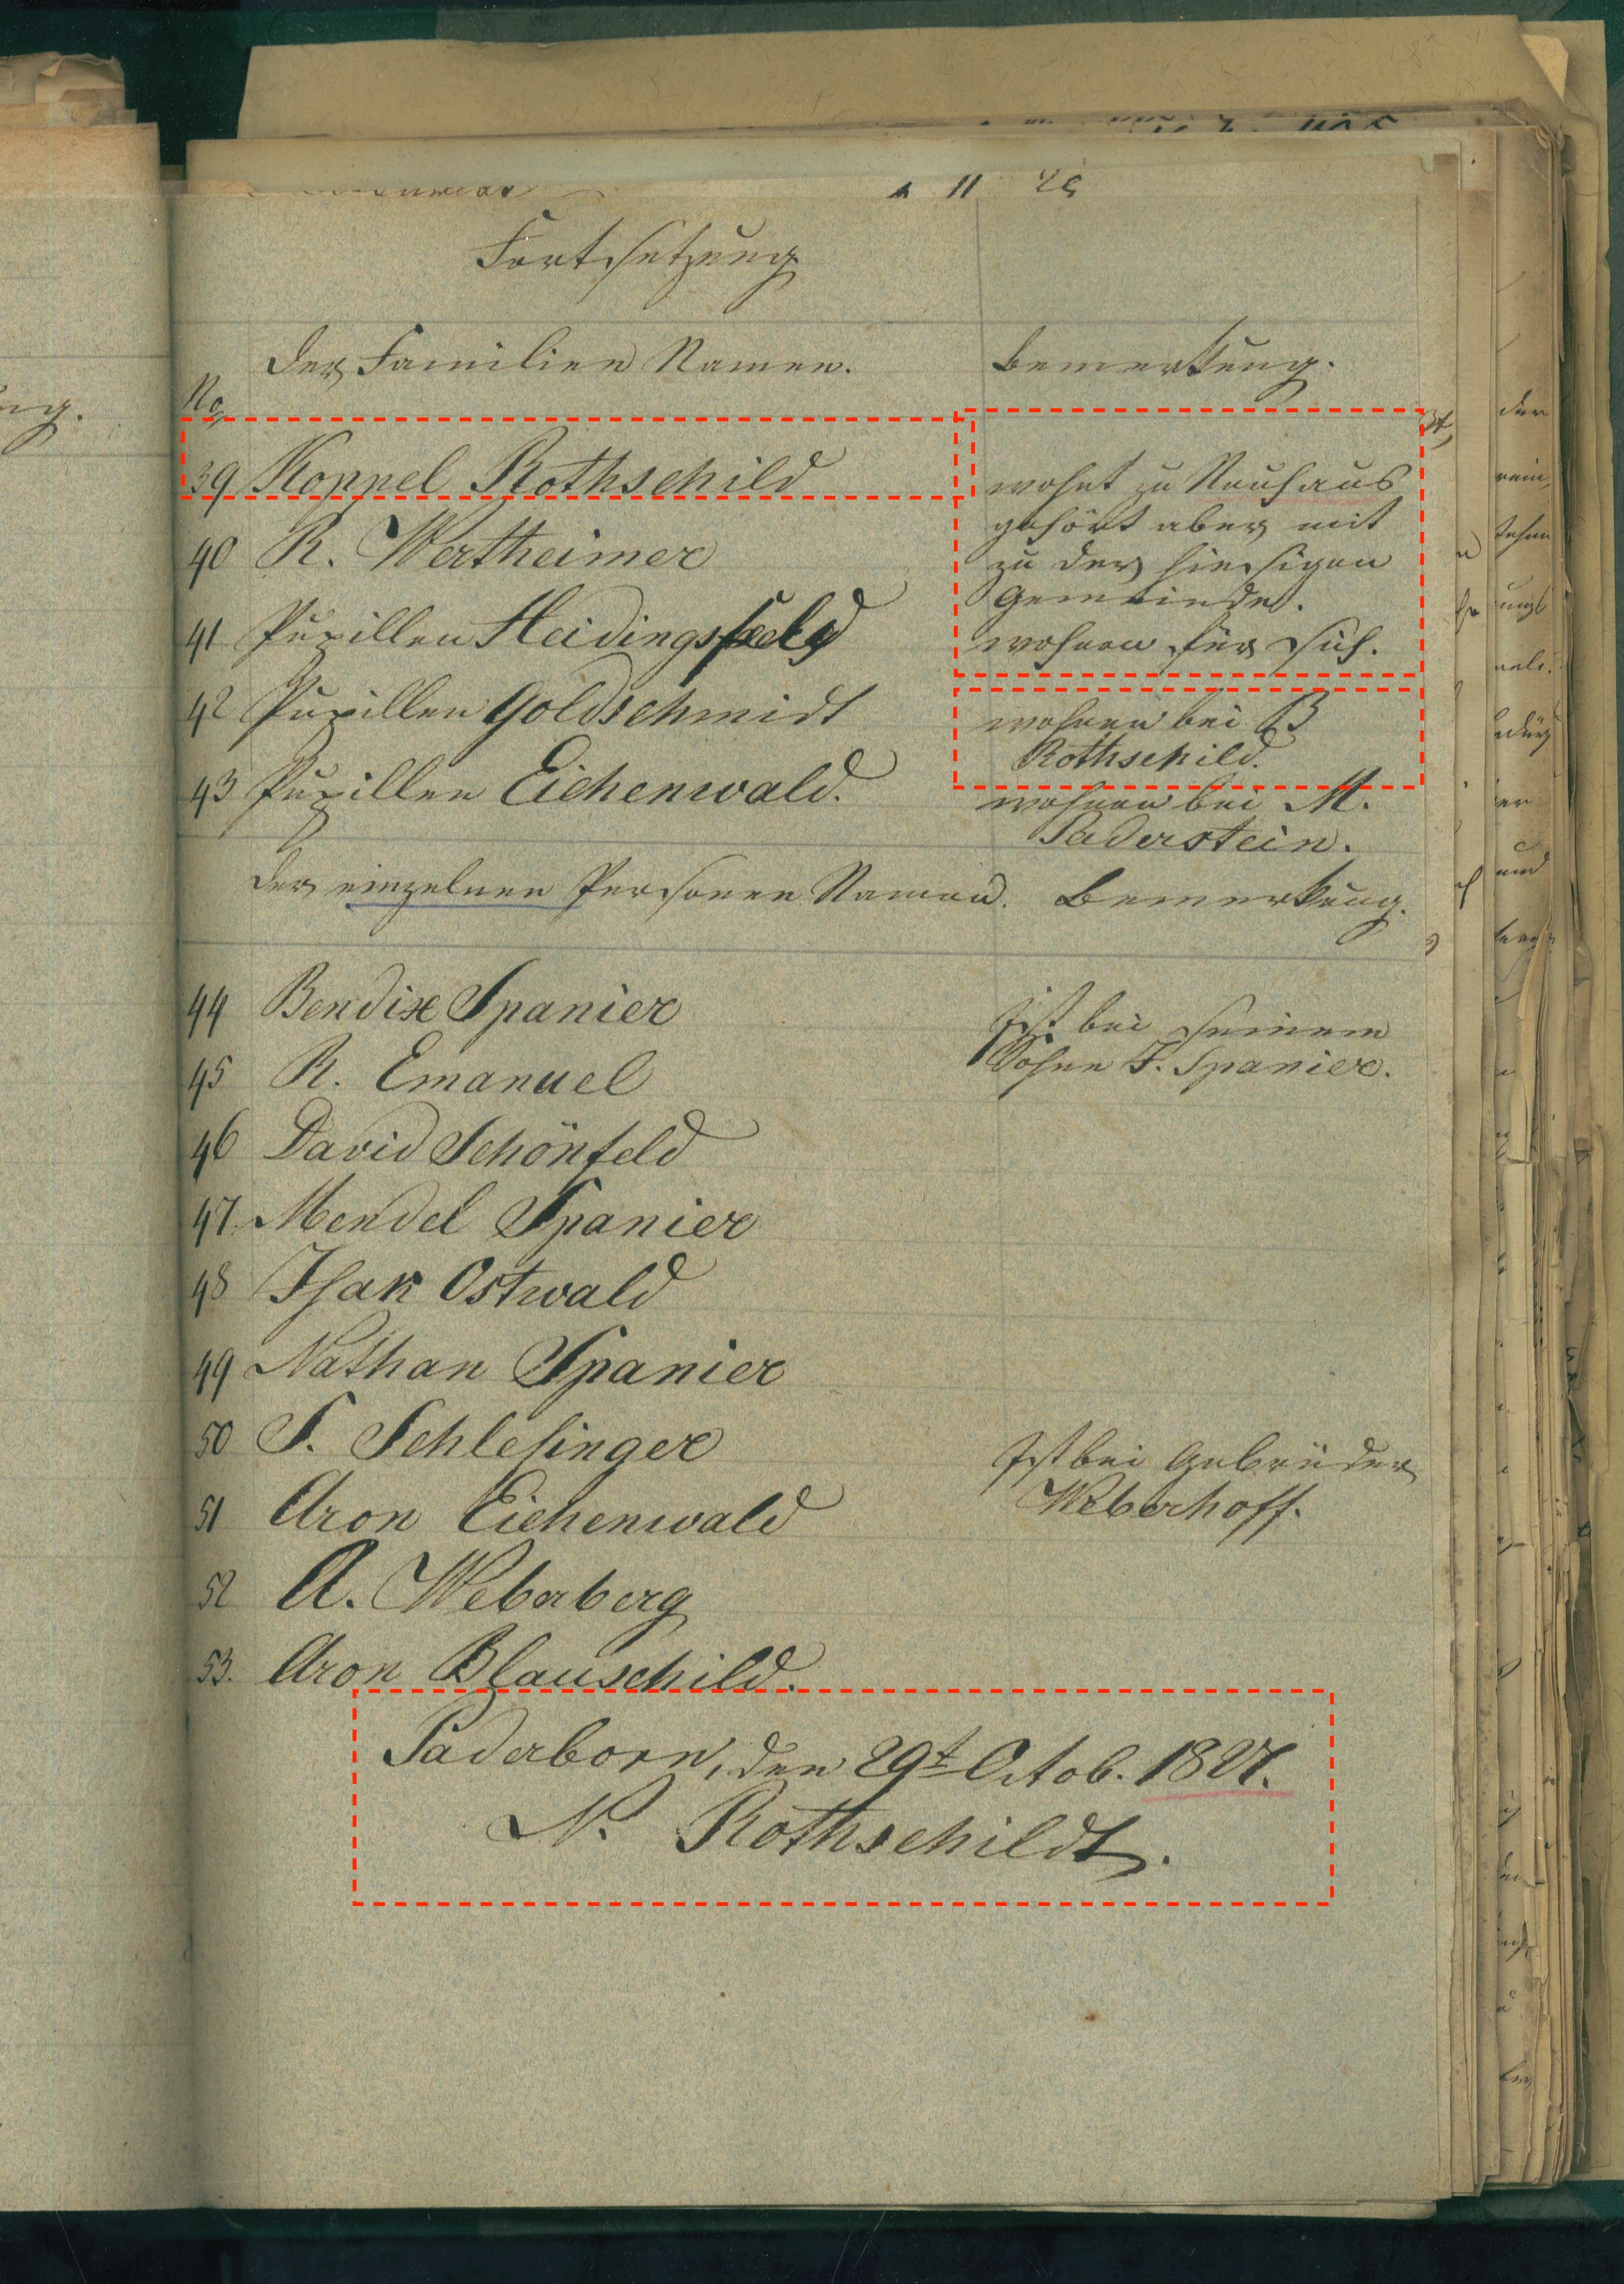 Fortsetzung
Der Familien Namen. Bemerkung.
No
39 Koppel Rothschild wohnt zu Neuhaus
gehört aber mit
40 R. Wertheimer zu der hiesigen
Gemeinde.
41 Pupillen Heidingsfeld wohnen für sich.
42 Pupillen Goldschmidt wohnen bei B
Rothschild.
43 Pupillen Eichenwald. wohnen bei M.
Paderstein.
Der einzelnen Personen Namen. Bemerkung.
44 Bendix Spanier Ist bei seinem
45 R. Emanuel Sohne J. Spanier.
46 David Schönfeld
47 Mendel Spanier
48 Isak Ostwald
49 Nathan Spanier
50 S. Schlesinger Ist bei Gebrüder
51 Aron Eichenwald Weberhoff.
52 A. Weberberg
53. Aron Blauschild.
Paderborn, den 29t Octob. 1827.
N. Rothschildt.